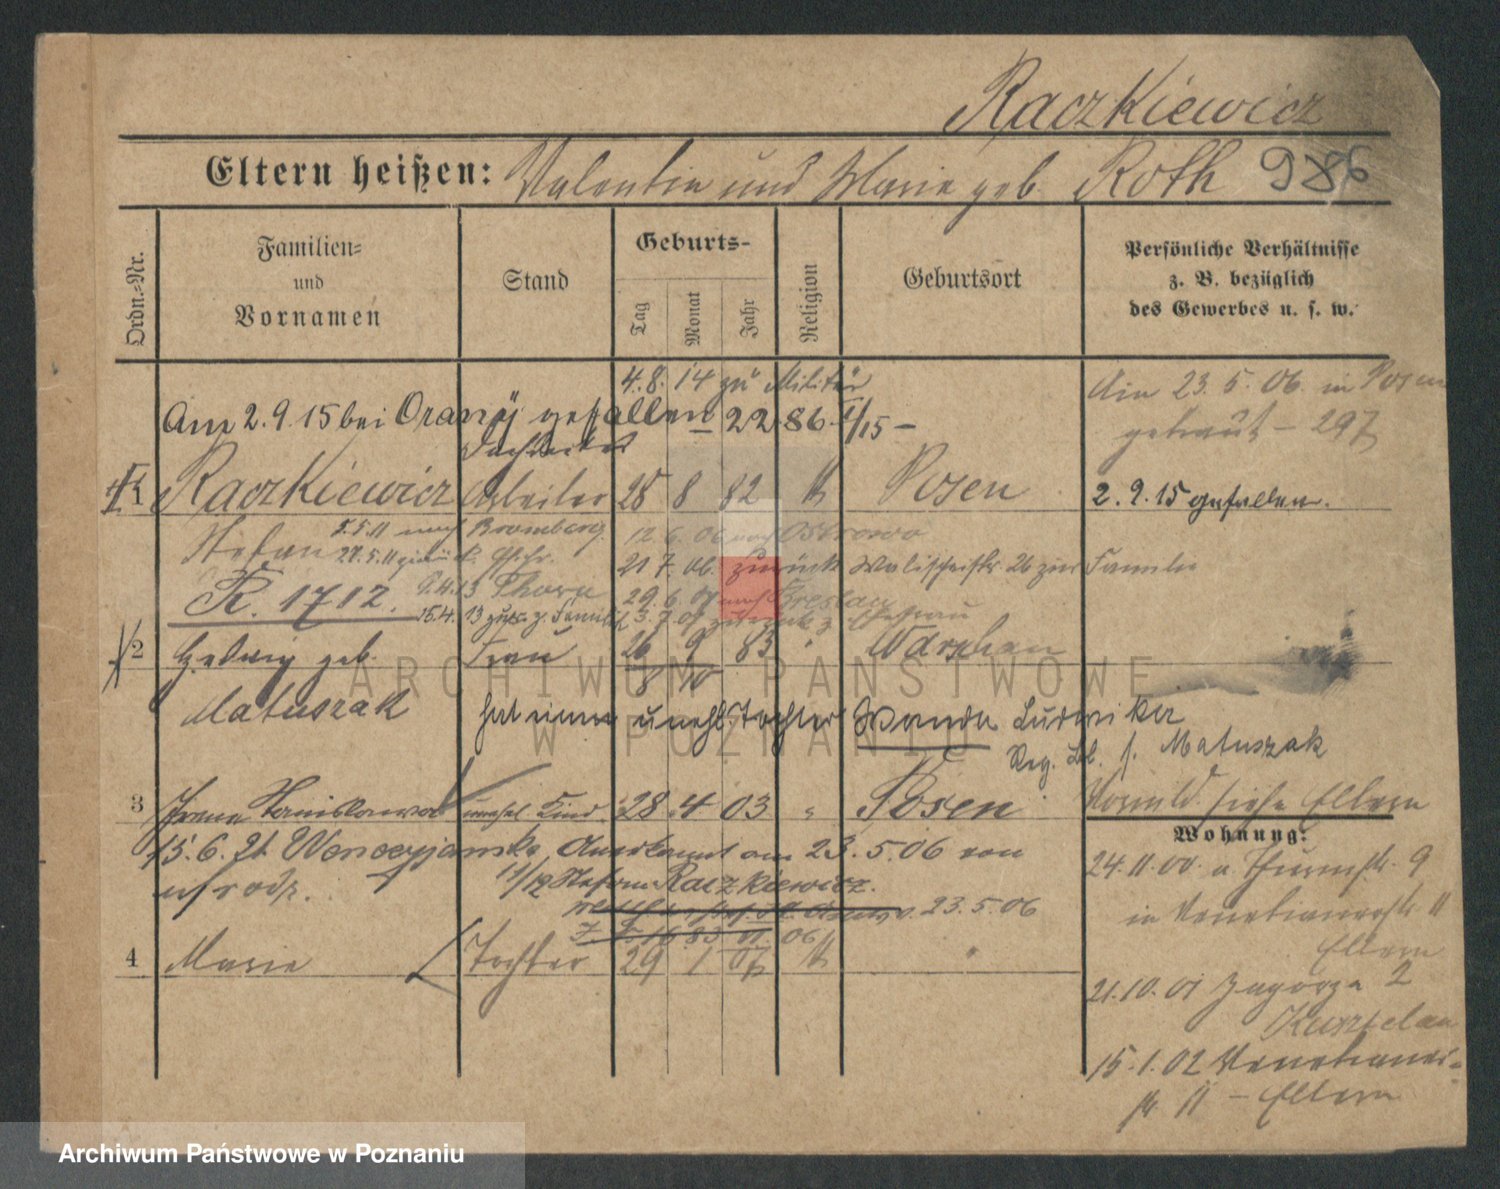 Raczkiewicz
Eltern heißen: Valentin und Marie geb. Roth 986
Ordn.-Nr.
Familien- und Vornamen
Stand
Geburts-
Tag Monat Jahr
Religion
Geburtsort
Persönliche Verhältnisse
z. B. bezüglich
des Gewerbes u. s. w.
4.8.14 zu Militär
Am 23.5.06. in Posen
getraut – 297
Am 2.9.15 bei Orany gefallen – 22.86. /15 –
1 Raczkiewicz Arbeiter 25 8 82 k Posen 2.9.15 gefallen.
Stefan 5.5.11 nach Bromberg. 12.6.06 nach Ostrowo
27.5.11 zurück 21 7. 06. zurück Wallischeistr. 26 zur Familie
K. 1712. 9.4.13 Thorn 29.6.07 nach Breslau
15.4.13 z. Familie 3.7.07 zurück z. Ehefrau
2 Hedwig geb. Frau 26 9 83 " Warschau
8 10
Matuszak hat eine unehl. Tochter Wanda Ludwika
Reg. Bl. f. Matuszak
3 Irena Stanislawa unehel. Kind. 28. 4 03 " Posen Vormld. siehe Eltern
15.6.21 Anerkannt am 23.5.06 von
Stefan Raczkiewicz.
v. 23.5.06
4 Marie Tochter 29 1 07 k "
Wohnung:
24.11.00. a. Thurmstr. 9
in Venetianerstr. 11
Eltern
21.10.01 Zagorze 2
Kasztelan
15.1.02 Venetianer-
str 11 – Eltern
ARCHIWUM PAŃSTWOWE
W POZNANIU
Archiwum Państwowe w Poznaniu